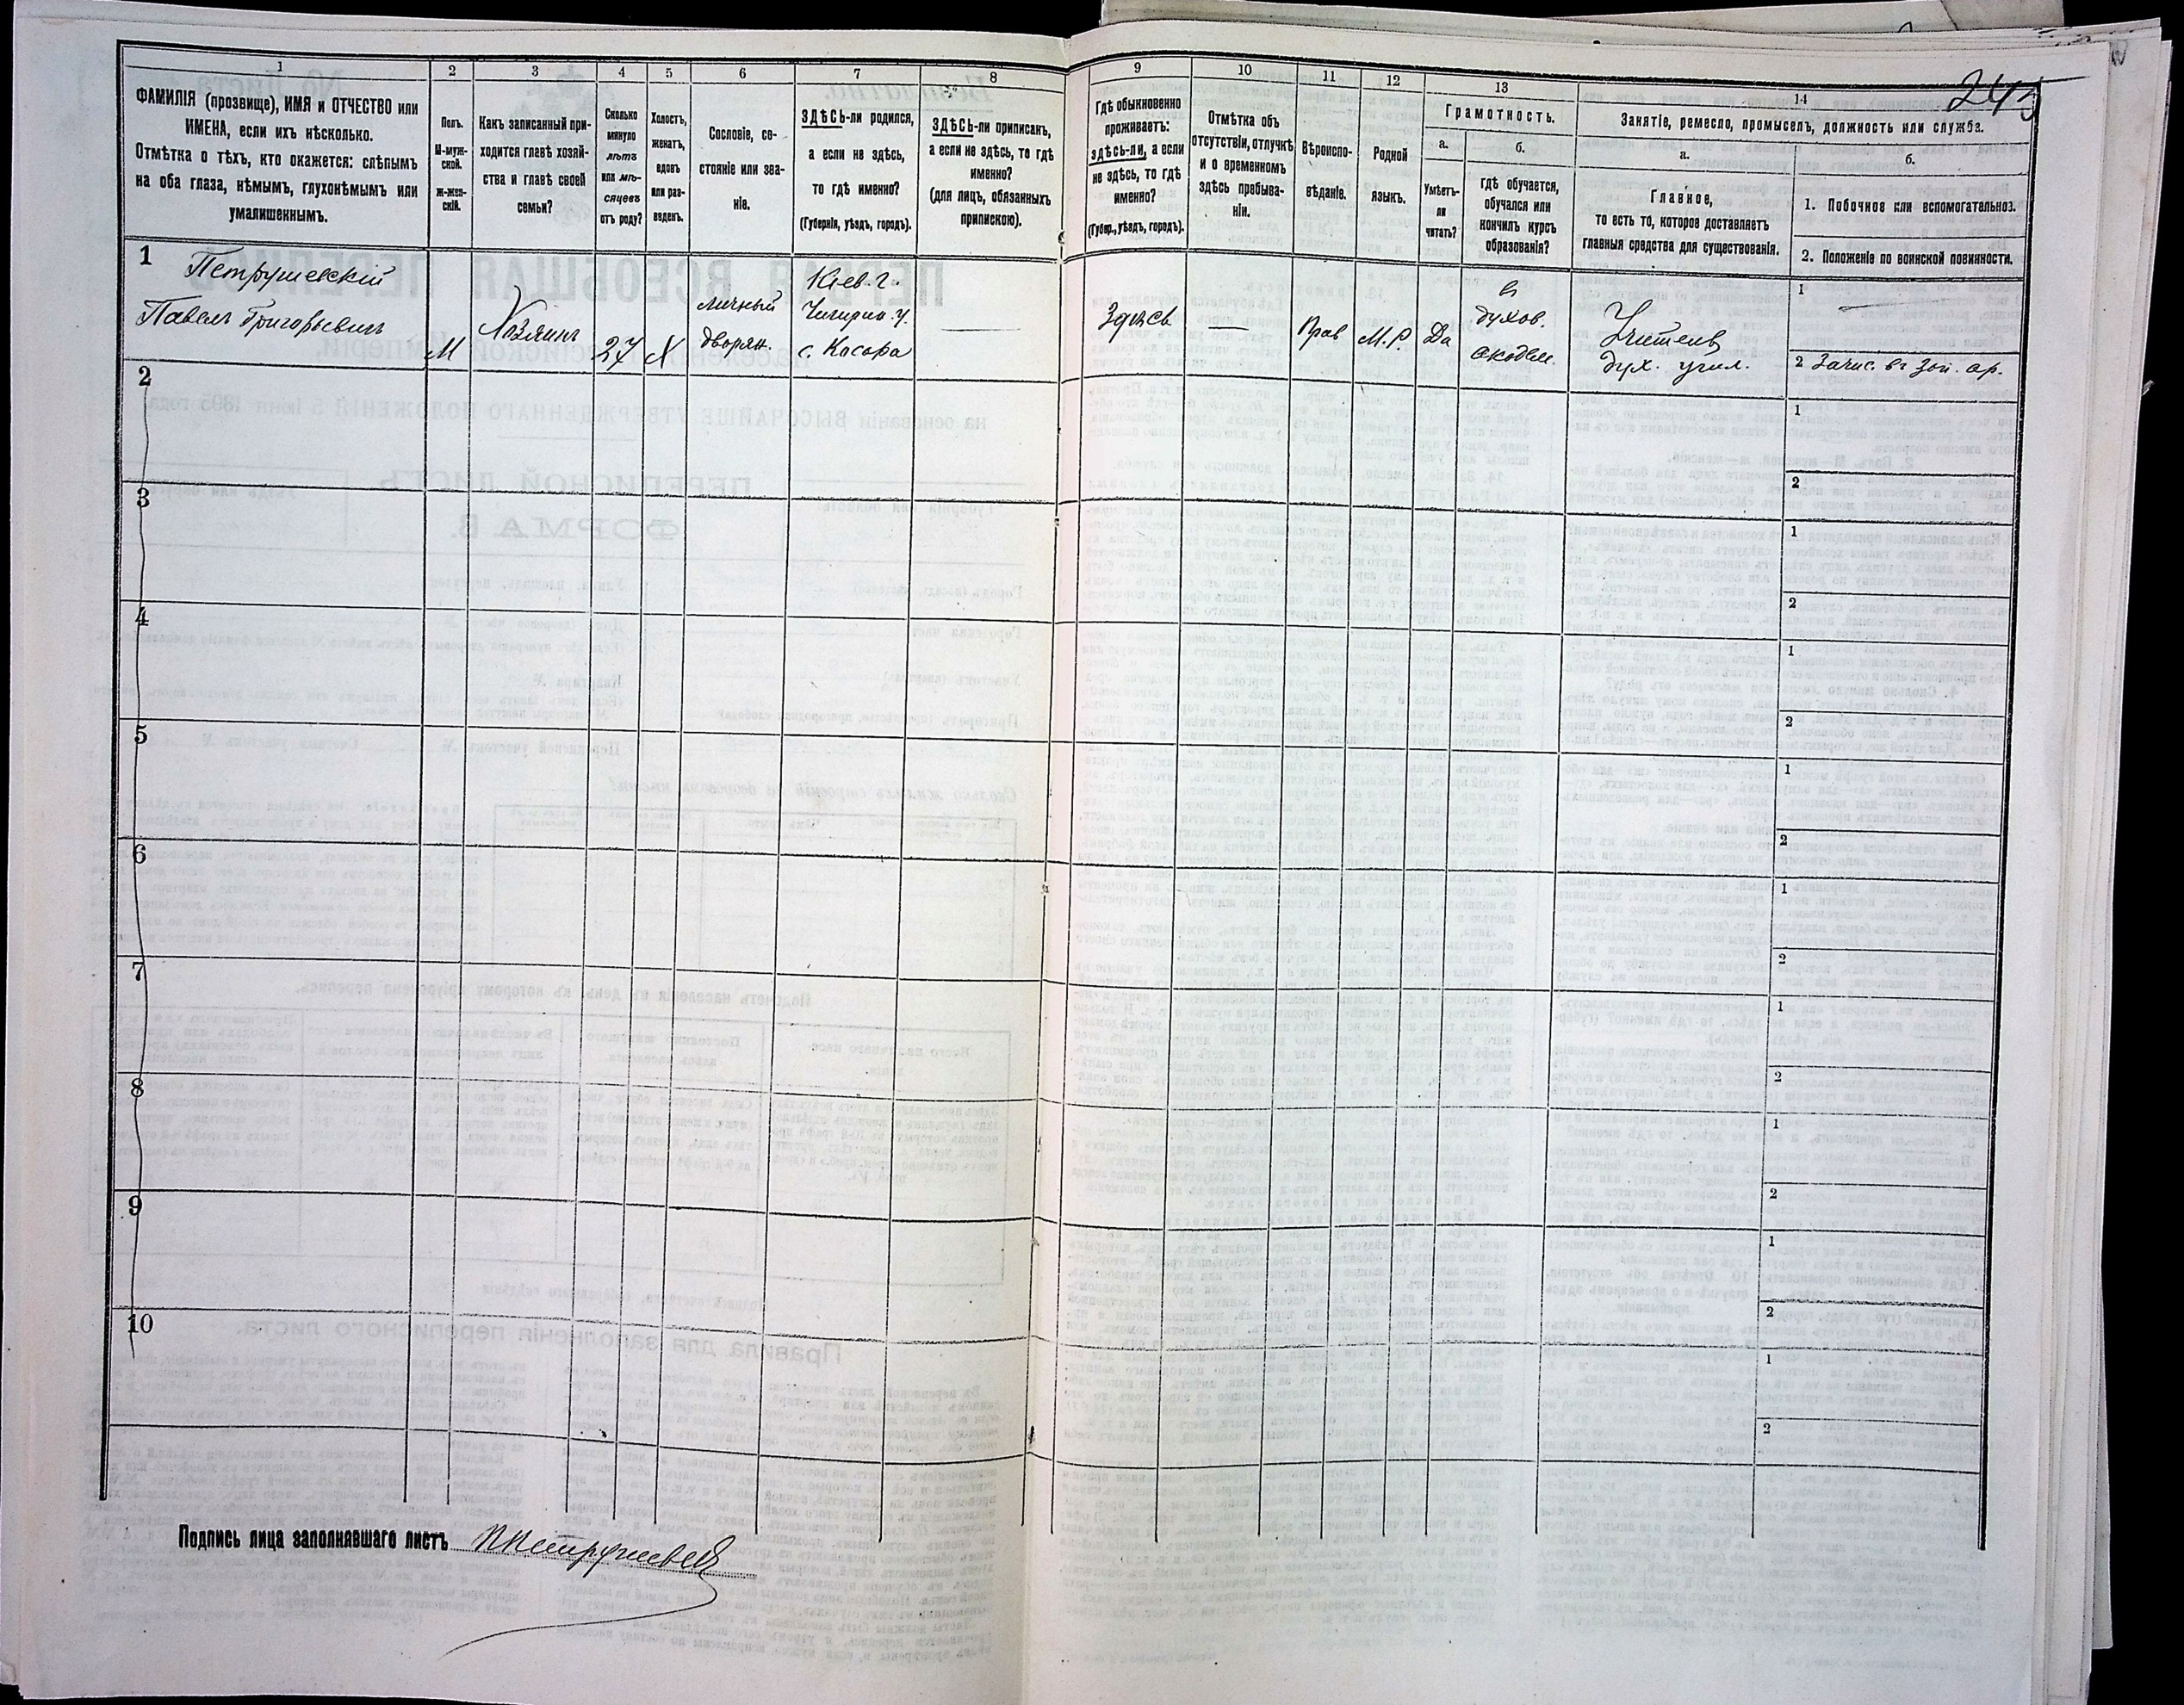 245
1
2
3
4
5
6
7
8
9
10
11
12
13
14
ФАМИЛІЯ (прозвище), ИМЯ и ОТЧЕСТВО или
ИМЕНА, если ихъ нѣсколько.
Отмѣтка о тѣхъ, кто окажется: слѣпымъ
на оба глаза, нѣмымъ, глухонѣмымъ или
умалишеннымъ.
Полъ.
М-муж-
ской.
Ж-жен-
скій.
Какъ записанный при-
ходится главѣ хозяй-
ства и главѣ своей
семьи?
Сколько
минуло
лѣтъ
или мѣ-
сяцевъ
отъ роду?
Холостъ,
женатъ,
вдовъ
или раз-
веденъ.
Сословіе, со-
стояніе или зва-
ніе.
ЗДѢСЬ-ли родился,
а если не здѣсь,
то гдѣ именно?
(Губернія, уѣздъ, городъ).
ЗДѢСЬ-ли приписанъ,
а если не здѣсь, то гдѣ
именно?
(для лицъ, обязанныхъ
припискою).
Гдѣ обыкновенно
проживаетъ:
здѣсь-ли, а если
не здѣсь, то гдѣ
именно?
(Губер., уѣздъ, городъ).
Отмѣтка объ
отсутствіи, отлучкѣ
и о временномъ
здѣсь пребыва-
ніи.
Вѣроиспо-
вѣданіе.
Родной
языкъ.
Грамотность.
а.
Умѣетъ-
ли
читать?
б.
Гдѣ обучается,
обучался или
кончилъ курсъ
образованія?
Занятіе, ремесло, промыселъ, должность или служба.
а.
Главное,
то есть то, которое доставляетъ
главныя средства для существованія.
б.
1. Побочное или вспомогательное.
2. Положеніе по воинской повинности.
1
Петрушевскій
Павелъ Григорьевичъ
М
Хозяинъ
27
Х
личный
дворян.
Кіев. г.
Чигирин. у.
с. Косара
Здѣсь
Прав
М. Р.
Да
въ
духов.
академ.
Учитель
дух. учил.
1
2 Зачис. въ зап. ар.
2
1
2
3
1
2
4
1
2
5
1
2
6
1
2
7
1
2
8
1
2
9
1
2
10
1
2
Подпись лица заполнявшаго листъ ППетрушевскій